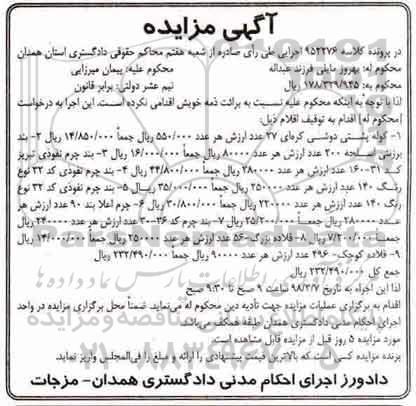 آگهی مزایده
در پرونده کلاسه ۹۵۲۲۷۶ اجرایی طی رای صادره از شعبه هفتم محاکم حقوقی دادگستری استان همدان
محکوم له: بهروز مایلی فرزند عبداله محکوم علیه: پیمان میرزایی
محکوم به: ۱۷۸/۳۳۹/۹۴۵ ریال نیم عشر دولتی: برابر قانون
لذا با توجه به اینکه محکوم علیه نسبت به برائت ذمه خویش اقدامی نکرده است. این اجرا به درخواست
[محکوم له] اقدام به توقیف اقلام ذیل:
۱- کوله پشتی دوشی کره‌ای ۲۷ عدد ارزش هر عدد ۵۵۰/۰۰۰ ریال جمعاً ۱۴/۸۵۰/۰۰۰ ریال ۲- بند
برزینی اسلحه ۲۰۰ عدد ارزش هر عدد ۸۰۰۰۰ ریال جمعاً ۱۶/۰۰۰/۰۰۰ ریال ۳- بند چرم نفوذی تبریز
کد ۳۱-۱۶۰ عدد ارزش هر عدد ۲۸۰۰۰۰ ریال جمعاً ۴۴/۸۰۰/۰۰۰ ریال ۴- بند چرم نفوذی کد ۳۲ نوع
رنگ ۱۴۰ عدد ارزش هر عدد ۲۵۰۰۰۰ ریال جمعاً ۳۵/۰۰۰/۰۰۰ ریال ۵- بند چرم نفوذی کد ۳۲ نوع
رنگ ۱۴۰ عدد ارزش هر عدد ۲۲۰۰۰۰ ریال جمعاً ۳۰/۸۰۰/۰۰۰ ریال ۶- چرم اعلا بند ۹۰ عدد ارزش هر
عدد ۲۸۰۰۰۰ ریال جمعاً ۲۵/۲۰۰/۰۰۰ ریال ۷- بند چرم کد ۳۶-۳۰ عدد ارزش هر عدد ۲۴۰۰۰۰ ریال
جمعاً ۷/۲۰۰/۰۰۰ ریال ۸- قلاده بزرگ-۵۶ عدد ارزش هر عدد ۲۵۰۰۰۰ ریال جمعاً ۱۴/۰۰۰/۰۰۰ ریال
۹- قلاده کوچک- ۴۹۶ عدد ارزش هر عدد ۹۰۰۰۰ ریال جمعاً ۲۳۲/۴۹۰/۰۰۰ ریال
جمع کل ۲۳۲/۴۹۰/۰۰۰ ریال
لذا این اجراء به تاریخ ۹۸/۲/۷ ساعت ۹ صبح تا ۹:۳۰ صبح
اقدام به برگزاری عملیات مزایده جهت تأدیه دین محکوم له می‌نماید. ضمناً محل برگزاری مزایده در واحد
اجرای احکام مدنی دادگستری همدان طبقه همکف می‌باشد.
مورد مزایده ۵ روز قبل از مزایده قابل مشاهده است.
برنده مزایده کسی است که بالاترین قیمت پیشنهادی را ارائه و مبلغ را فی‌المجلس واریز نماید.
دادورز اجرای احکام مدنی دادگستری همدان- مزجات